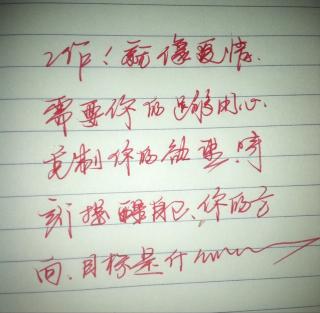 工作！就像爱情.
需要你的足够用心.
克制你的 时
刻提醒自己、你的方
向.目标是什